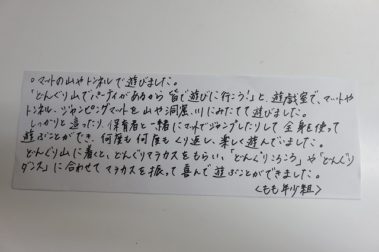 ○マットの山やトンネルで遊びました。
「どんぐり山でパーティがあるから皆で遊びに行こう!」と、遊戯室で、マットや
トンネル、ジャンピングマットを山や洞窟、川にみたてて遊びました。
しっかりと這ったり、保育者と一緒にマットでジャンプしたりして全身を使って
遊ぶことができ、何度も何度もくり返し楽しく遊んでいました。
どんぐり山に着くと、どんぐりマラカスをもらい、「どんぐりころころ」や「どんぐり
ダンス」に合わせてマラカスを振って喜んで遊ぶことができました。
〈もも年少組〉